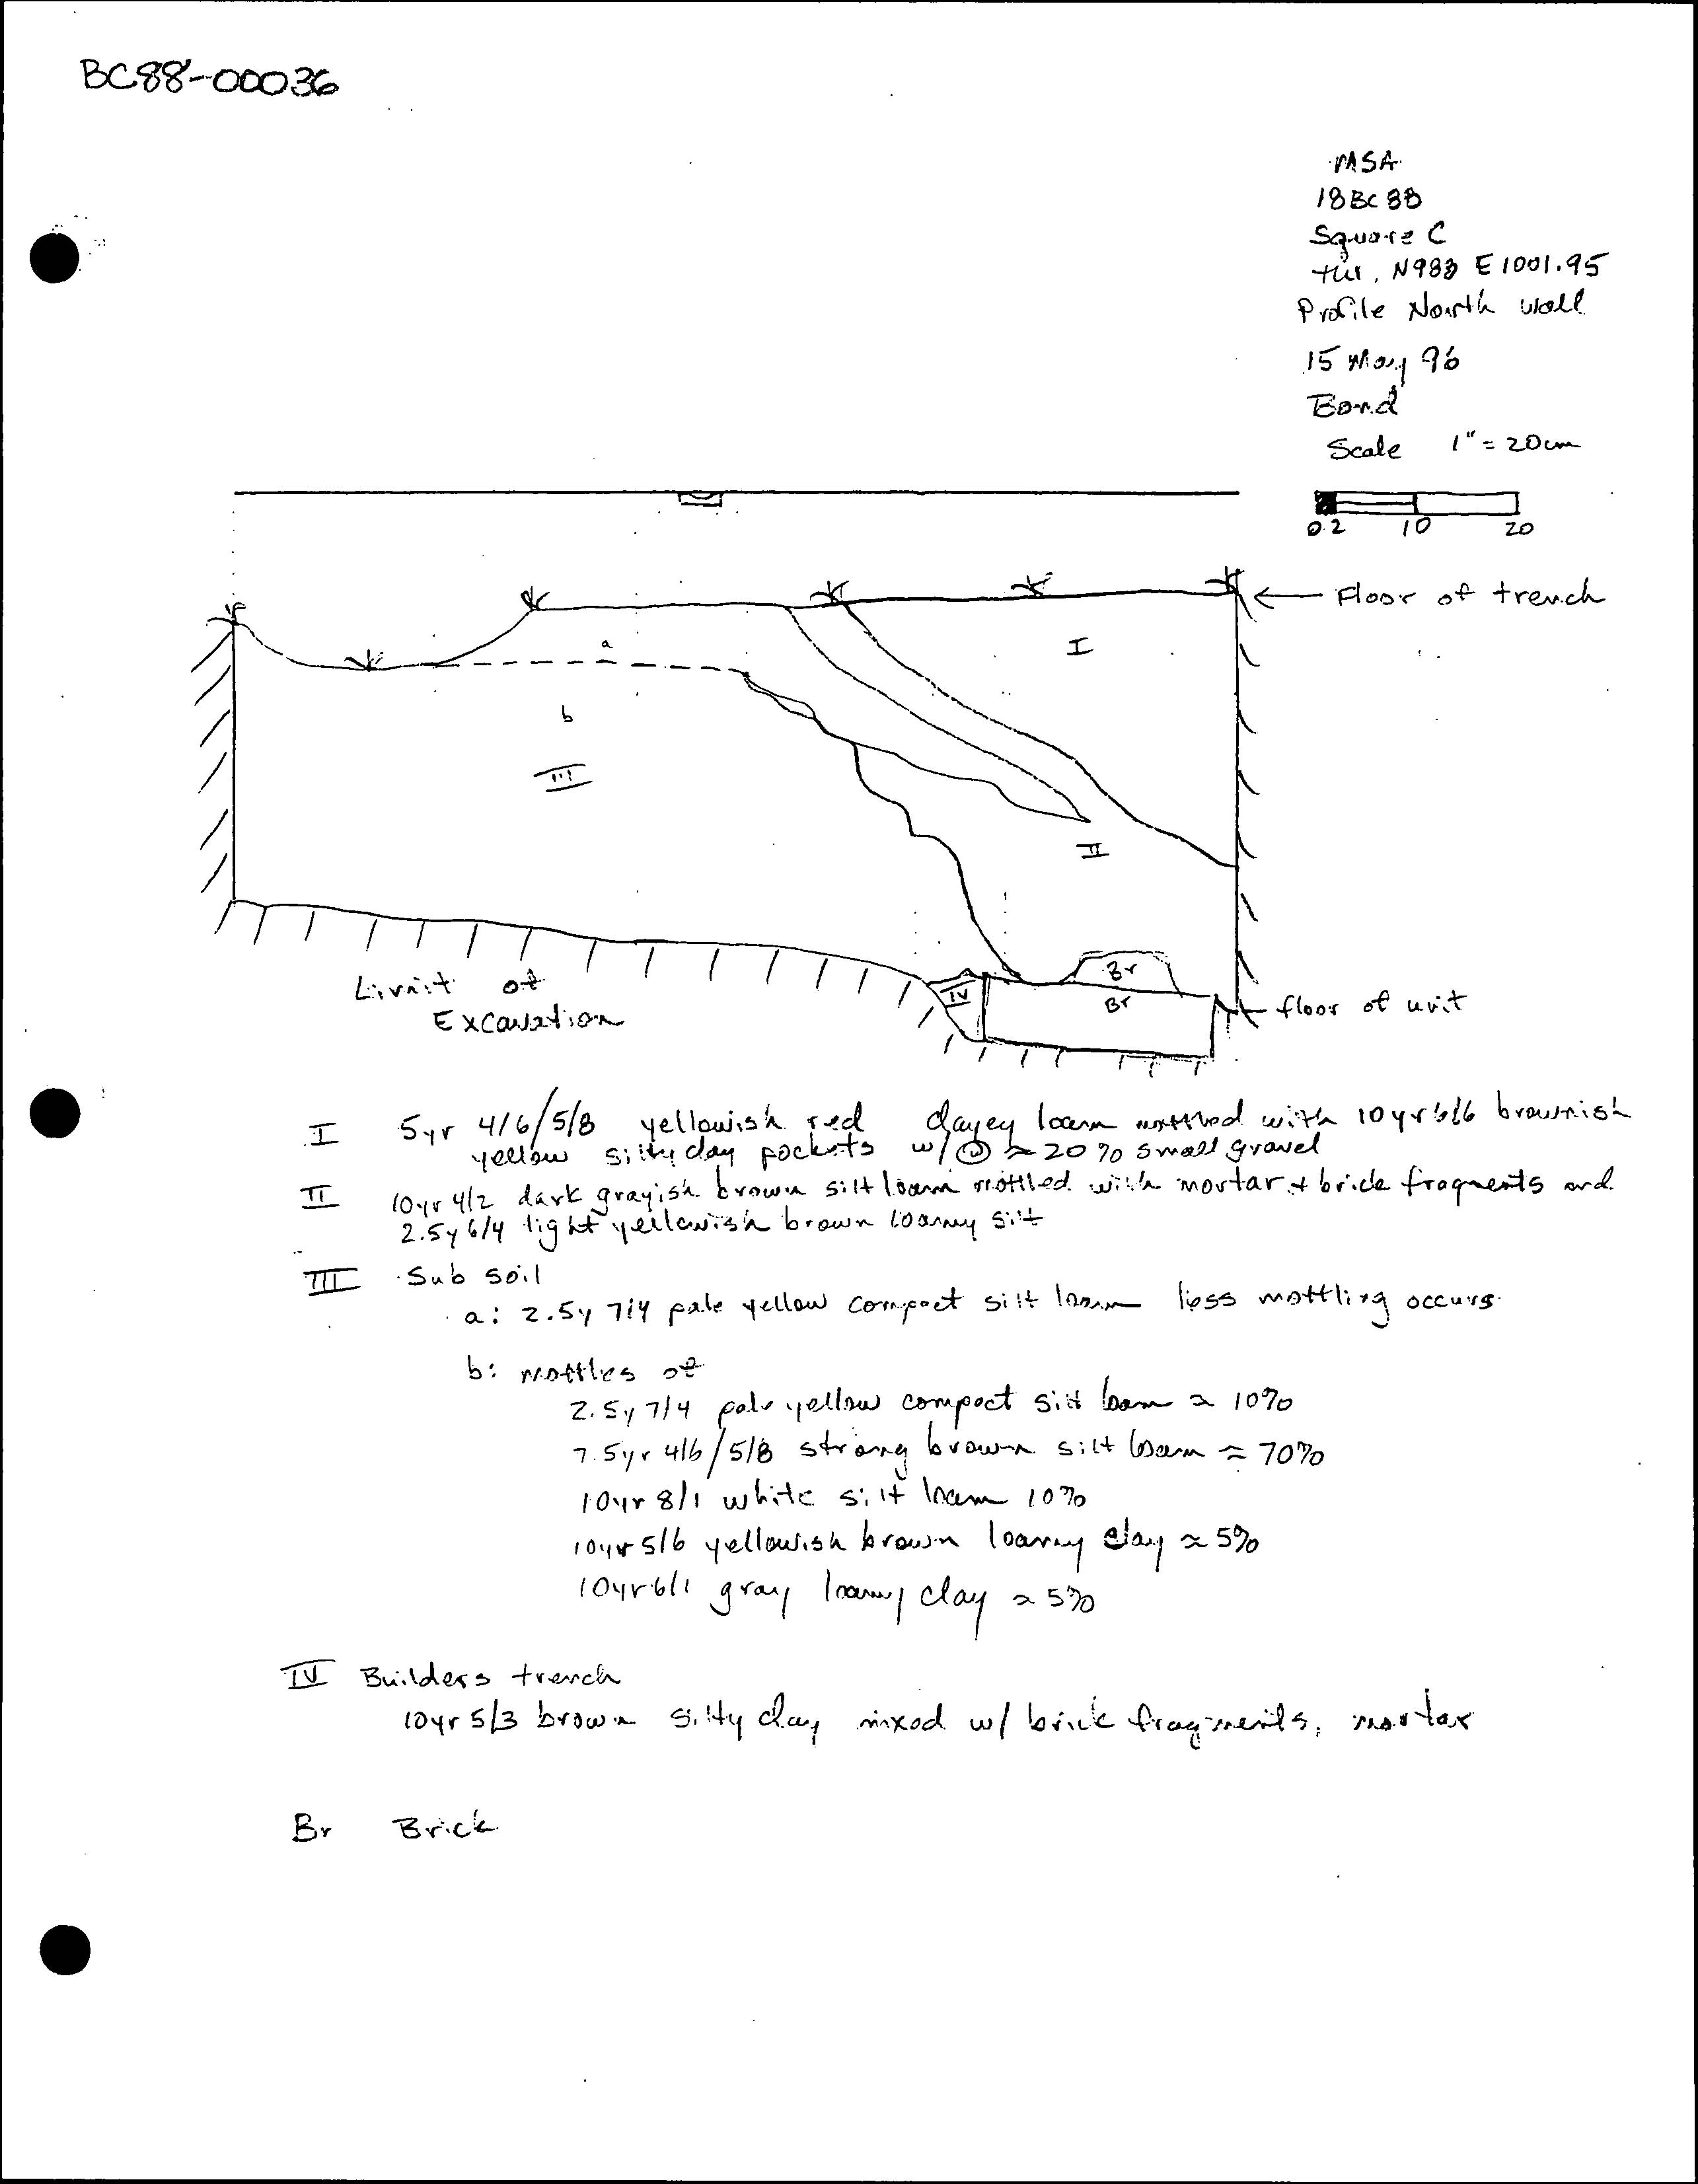 BC88-00036
MSA
18BC88
Square C
N983 E1001.95
Profile North wall
15 May 96
Bond
Scale 1" = 20cm
0 2 10 20
← Floor of trench
a
I
b
III
II
Br
IV
Br
Limit of
Excavation
← floor of unit
I 5yr 4/6/5/8 yellowish red clayey loam mottled with 10yr6/6 brownish
yellow silty clay pockets w/ ≈ 20% small gravel
II 10yr 4/2 dark grayish brown silt loam mottled with mortar + brick fragments and
2.5y6/4 light yellowish brown loamy silt
III Sub soil
a: 2.5y 7/4 pale yellow compact silt loam less mottling occurs
b: mottles of
2.5y 7/4 pale yellow compact silt loam ≈ 10%
7.5yr 4/6/5/8 strong brown silt loam ≈ 70%
10yr 8/1 white silt loam 10%
10yr 5/6 yellowish brown loamy clay ≈ 5%
10yr6/1 gray loamy clay ≈ 5%
IV Builders trench
10yr 5/3 brown silty clay mixed w/ brick fragments, mortar
Br Brick